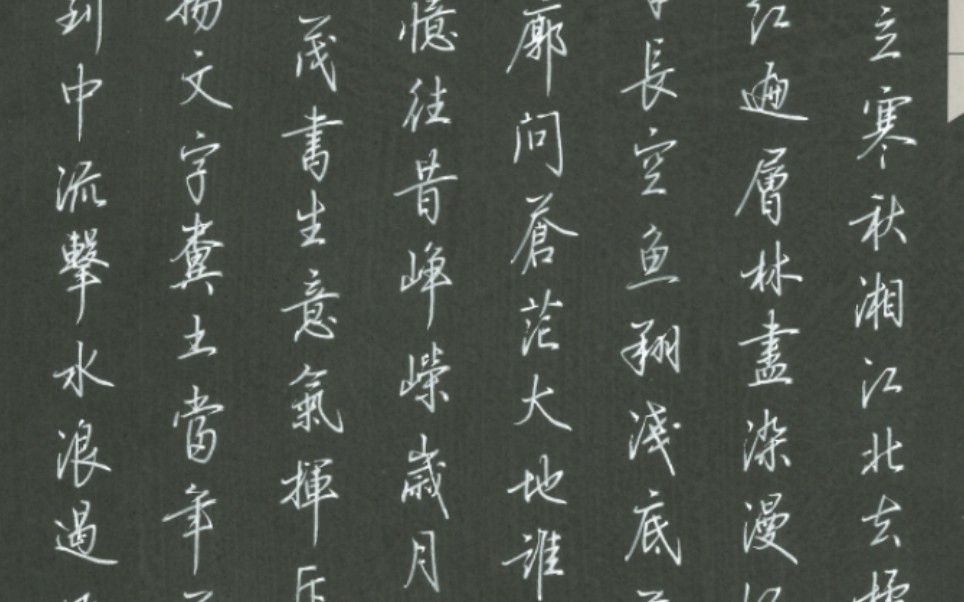 立寒秋湘江北去橘
紅遍層林盡染漫江
長空魚翔淺底萬
廓問蒼茫大地誰
憶往昔崢嶸歲月
茂書生意氣揮斥
揚文字糞土當年萬
到中流擊水浪遏飛